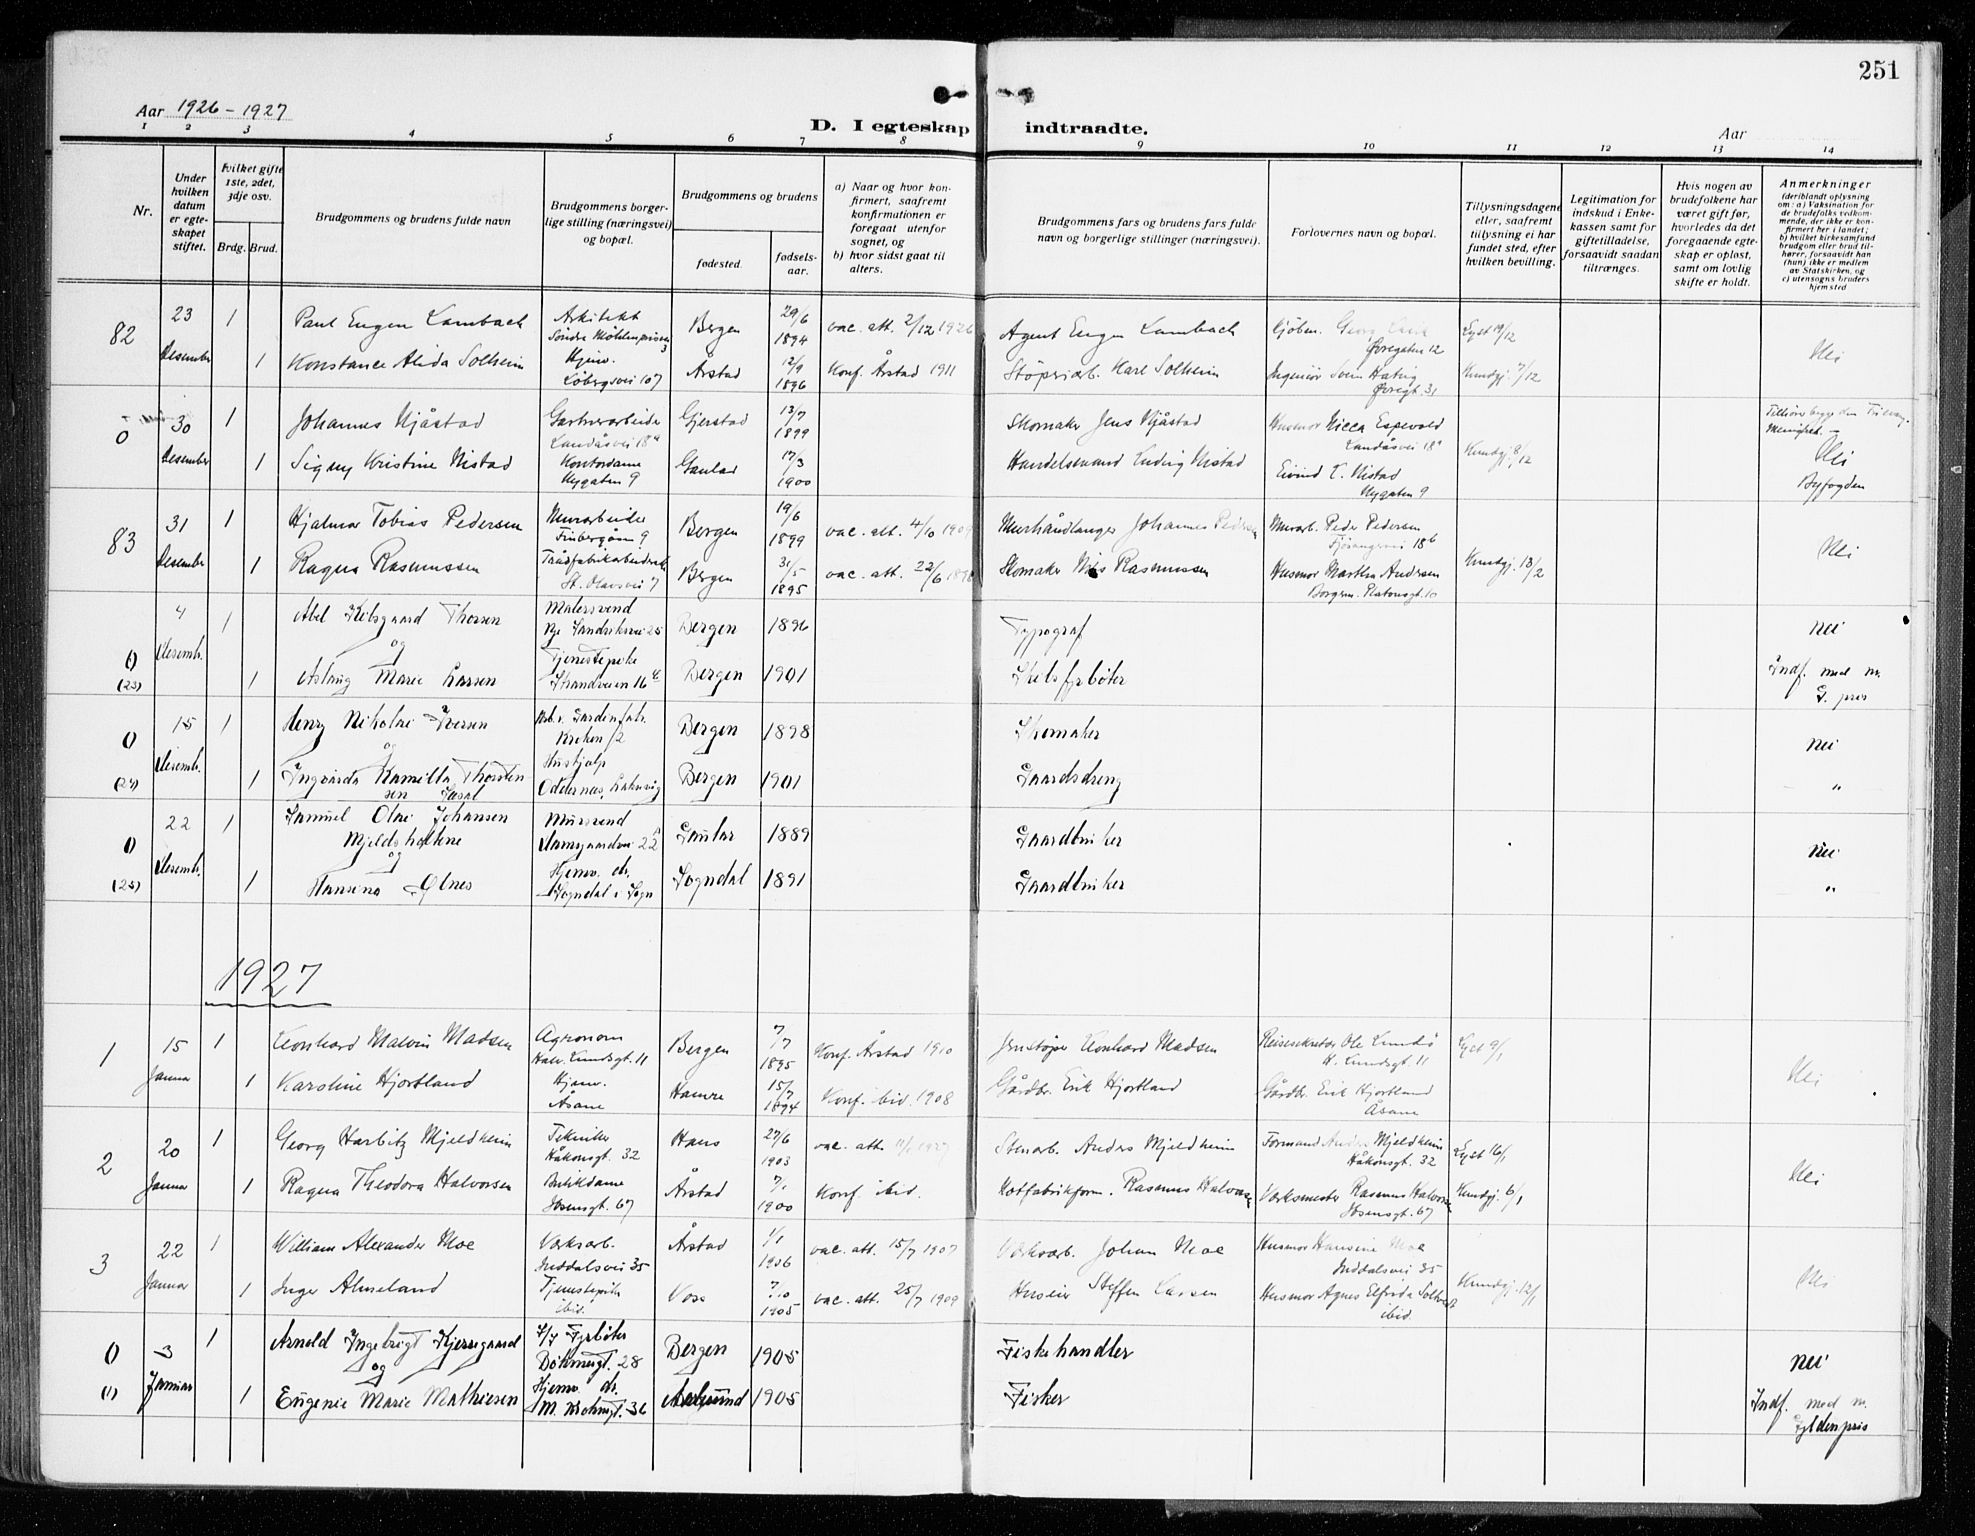 251
Aar 1926 - 1927
D. I egteskap indtraadte.
Aar
1 2 3 4 5 6 7 8 9 10 11 12 13 14
Nr.
Under hvilken datum er egteskapet stiftet.
Hvilket gifte 1ste, 2det, 3dje osv.
Brdg. Brud.
Brudgommens og brudens fulde navn
Brudgommens borgerlige stilling (næringsvei) og bopæl.
Brudgommens og brudens
fødested. fødselsaar.
a) Naar og hvor konfirmert, saafremt konfirmationen er foregaat utenfor sognet, og
b) hvor sidst gaat til alters.
Brudgommens fars og brudens fars fulde navn og borgerlige stillinger (næringsvei).
Forlovernes navn og bopæl.
Tillysningsdagene eller, saafremt tillysning ei har fundet sted, efter hvilken bevilling.
Legitimation for indskud i Enkekassen samt for giftetilladelse, forsaavidt saadan tiltrænges.
Hvis nogen av brudefolkene har været gift før, hvorledes da det foregaaende egteskap er opløst, samt om lovlig skifte er holdt.
Anmerkninger (deriblandt oplysning om: a) Vaksination for de brudefolks vedkommende, der ikke er konfirmert her i landet; b) hvilket kirkesamfund brudgom eller brud tilhører, forsaavidt han (hun) ikke er medlem av Statskirken, og c) utensogns bruders hjemsted
82 23 Desember 1 Paul Eugen Lambach Arkitekt Søndre Møhlenprisen 3 Bergen 29/6 1894 vac. att. 2/12 1926 Agent Eugen Lambach Kjøbm. Georg Øvregaten 12 Lyst 19/12
1 Konstance Alida Solheim Hjemv. Løbergsvei 107 Årstad 12/9 1896 Konf. Årstad 1911 Støperiarb. Karl Solheim Ingeniør Svein Øvregt. 31 Kundgj. 7/12 Nei
0 30 Desember 1 Johannes Njåstad Gartnerarbeider Landåsvei 18a Gjerstad 13/7 1899 Skomaker Jens Njåstad Husmor Nicca Espevold Landåsvei 18a
1 Signy Kristine Nistad Kontordame Nygaten 9 Gaular 17/3 1900 Handelsmand Ludvig Nistad Eivind L. Nistad Nygaten 9 Kundgj. 8/12 Nei Byfogden
83 31 Desember 1 Hjalmar Tobias Pedersen Murarbeider Finbergåsen 9 Bergen 19/6 1899 vac. att. 4/10 1909 Murhåndlanger Johannes Pedersen Murarb. Peder Pedersen Fjøsangervei 18b
1 Ragna Rasmussen Trådfabrikarbeiderske St. Olavsvei 7 Bergen 31/5 1895 vac. att. 22/6 1896 Skomaker Nils Rasmussen Husmor Martha Andersen Borgerm. Platousgt. 10 Kundgj. 13/2 Nei
0 (23) 4 Desemb. 1 Abel Kibsgaard Thorsen Malersvend Nye Sandviksvei 25 Bergen 1896 Typograf nei
og
1 Aslaug Marie Larsen Tjenestepike Strandveien 16 c Bergen 1901 Skibsfyrbøter Indf. med nr. G. pres
0 (24) 15 Desemb. 1 Henry Nikolai Iversen Arb. v. Gardinfabr. Kroken 12 Bergen 1898 Skomaker nei
og
1 Ingvarda Kamilla Thorstensen Hasal Hushjelp Oddernes, Laksevåg Bergen 1901 Gaardsdreng "
0 (25) 22 Desemb. 1 Samuel Olai Johansen Mjeldsholtene Mursvend Damsgaardsvei 22 Gaular 1889 Gaardbruker nei
og
1 Hansina Ølnes Hjemv. dr. Sogndal i Sogn Sogndal 1891 Gaardbruker "
1927
1 15 Januar 1 Leonhard Malvin Madsen Agronom Halv. Lundsgt. 11 Bergen 7/7 1895 Konf. Årstad 1910 Jernstøper Leonhard Madsen Reisesekretær Ole Lundø H. Lundsgt. 11 Lyst 9/1
1 Karoline Hjortland Hjemv. Åsane Hamre 15/7 1894 Konf. ibid. 1908 Gårdbr. Erik Hjortland Gårdbr. Erik Hjortland Åsane Nei
2 20 Januar 1 Georg Harbitz Mjeldheim Tekniker Håkonsgt. 32 Haus 27/6 1903 vac. att. 11/1 1927 Stenarb. Anders Mjeldheim Formand Anders Mjeldheim Håkonsgt. 32 Lyst 16/1
1 Ragna Theodora Halvorsen Butikdame Ibsensgt. 67 Årstad 7/1 1900 Konf. ibid. Hatfabrikform. Rasmus Halvorsen Værksmester Rasmus Halvorsen Ibsensgt. 67 Kundgj. 6/1 Nei
3 22 Januar 1 William Alexander Moe Værksarb. Inddalsvei 35 Årstad 1/1 1906 vac. att. 15/7 1907 Værksarb. Johan Moe Husmor Hansine Moe Inddalsvei 35
1 Inger Almeland Tjenestepike ibid. Voss 7/10 1905 vac. att. 25/7 1909 Huseier Steffen Larsen Husmor Agnes Elfrida Solheim ibid. Kundgj. 12/1 Nei
0 (1) 3 Januar 1 Arnold Ingebrigt Kjerregaard Fyrbøter Dokmgt. 28 Bergen 1905 Fiskehandler nei
og
1 Eugenie Marie Mathiesen Hjemv. dr. M. Krohnsgt. 36 Aalesund 1905 Fisker Indf. med nr. Gyldenpris